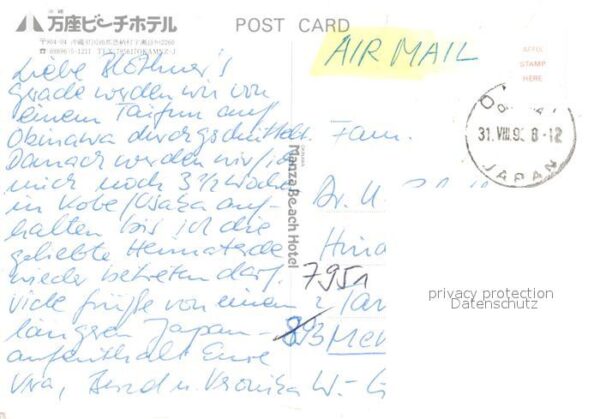 沖縄
万座ビーチホテル
POST CARD
AIR MAIL
AFFIX
STAMP
HERE
Liebe
gerade werden wir von
einem Taifun auf
Okinawa durchgeschüttelt.
Danach werden wir/ich
mich noch 3 1/2 Wochen
in Kobe/Osaka auf-
halten bis ich die
geliebte Heimaterde
wieder betreten darf.
Viele Grüße von einem
längren Japan-
aufenthalt Eure
Uwa, Bernd u. Veronika W.-
Manza Beach Hotel
Fam.
Dr. U.
7951
893
31. VIII. 93 8-12
JAPAN
privacy protection
Datenschutz